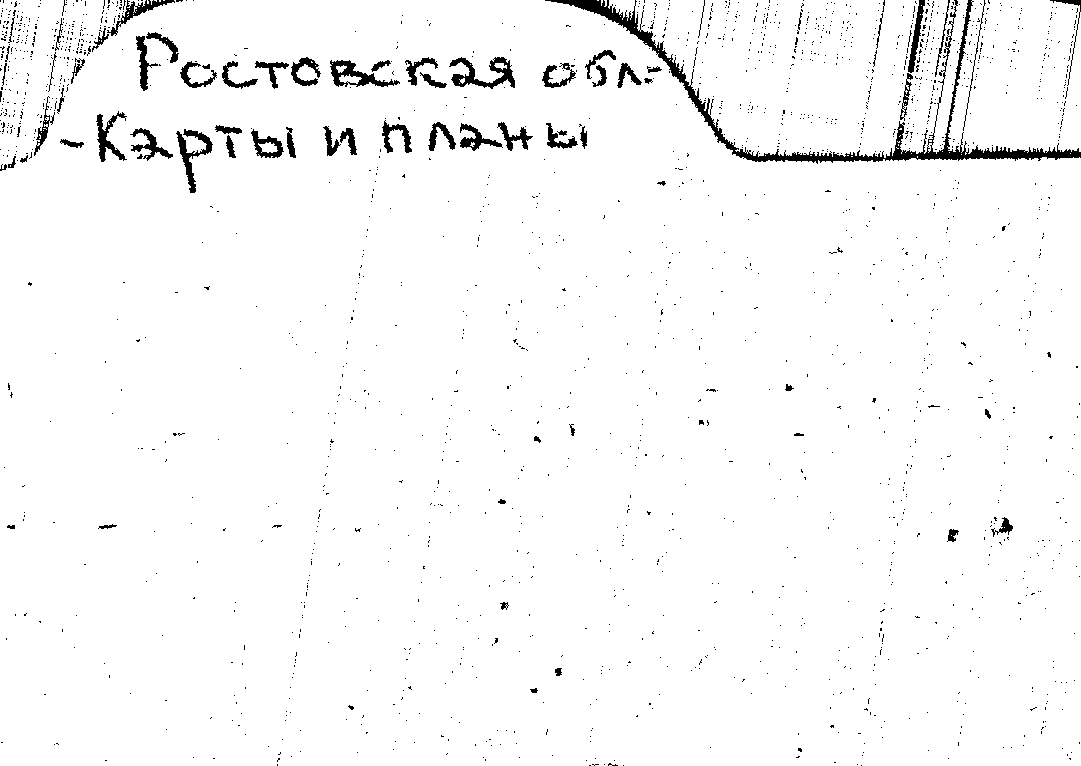 Ростовская обл.-
-Карты и планы